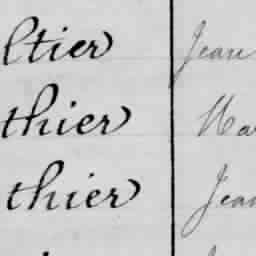 ltier Jean
thier Ma
thier Jean